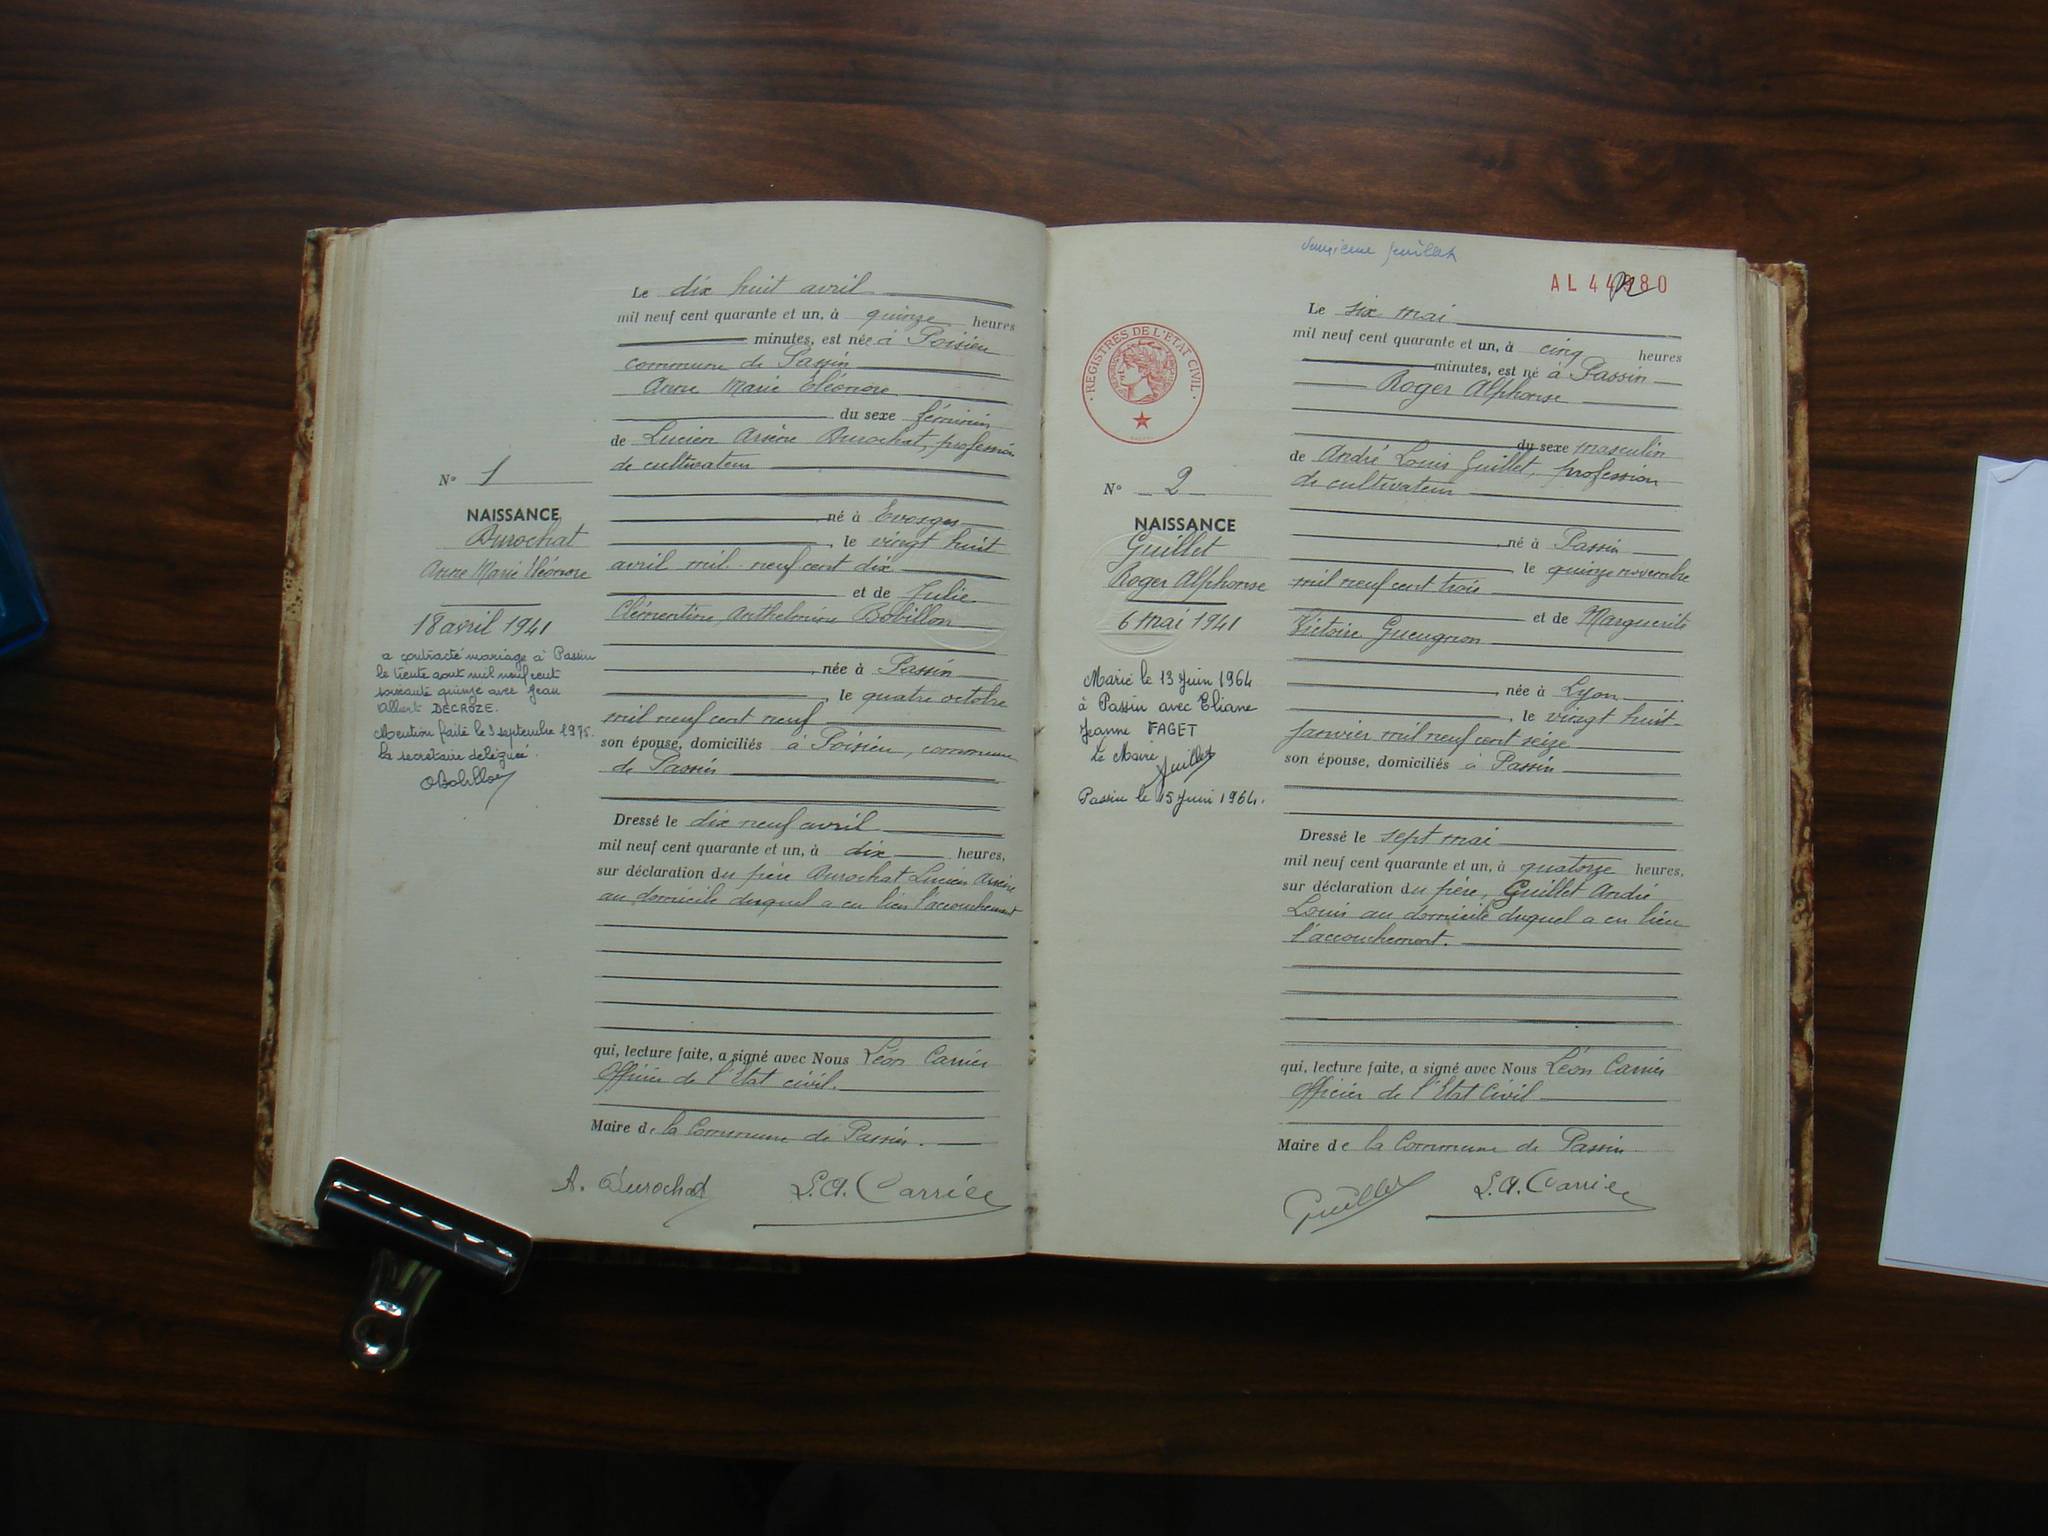 Le dix huit avril
mil neuf cent quarante et un, à quinze heures
minutes, est née à Poisieu
commune de Passin
Anne Marie Eléonore
du sexe féminin
de Lucien Arsène Burochat, profession
de cultivateur
N° 1
né à Evosges
NAISSANCE
Burochat
Anne Marie Eléonore
18 avril 1941
, le vingt huit
avril mil neuf cent dix
et de Julie
Clémentine Anthelmine Bobillon
a contracté mariage à Passin
le trente aout mil neuf cent
soixante quinze avec Jean
Albert DECROZE.
Mention faite le 3 septembre 1975.
La secrétaire déléguée.
OBobillon
, née à Passin
, le quatre octobre
mil neuf cent neuf
son épouse, domiciliés à Poisieu, commune
de Passin
Dressé le dix neuf avril
mil neuf cent quarante et un, à dix heures,
sur déclaration du père Burochat Lucien Arsène
au domicile duquel a eu lieu l'accouchement
qui, lecture faite, a signé avec Nous Léon Carrier
Officier de l'Etat civil.
Maire de la Commune de Passin.
A. Burochat L.A. Carrier
deuxième feuillet
AL 44980
REGISTRES DE L'ETAT CIVIL
Le six mai
mil neuf cent quarante et un, à cinq heures
minutes, est né à Passin
Roger Alphonse
du sexe masculin
de André Louis Guillet, profession
de cultivateur
N° 2
NAISSANCE
Guillet
Roger Alphonse
6 mai 1941
né à Passin
le quinze novembre
mil neuf cent trois
et de Marguerite
Victoire Gueugnon
Marié le 13 Juin 1964
à Passin avec Eliane
Jeanne FAGET
Le Maire
Guillet
Passin le 15 Juin 1964.
née à Lyon
, le vingt huit
Janvier mil neuf cent seize
son épouse, domiciliés à Passin
Dressé le sept mai
mil neuf cent quarante et un, à quatorze heures,
sur déclaration du père, Guillet André
Louis au domicile duquel a eu lieu
l'accouchement.
qui, lecture faite, a signé avec Nous Léon Carrier
Officier de l'Etat Civil
Maire de la Commune de Passin
Guillet L.A. Carrier